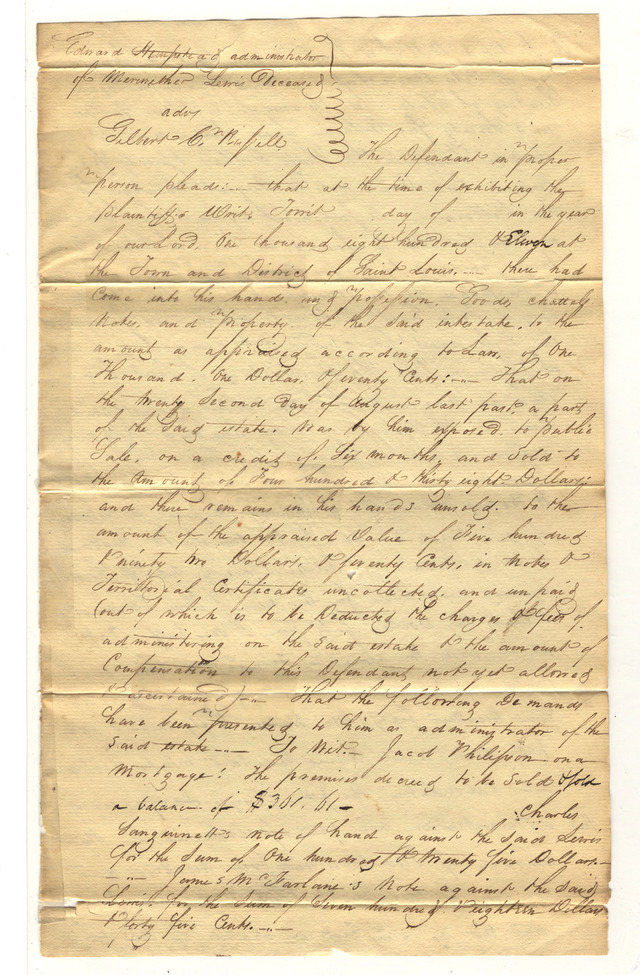 Edward Hempstead administrator
of Meriwether Lewis Deceased
advs
Gilbert C. Russell
The Defendant in proper
person pleads:— that at the time of exhibiting the
plaintiff's Writ. Towit day of in the year
of our Lord. One thousand eight hundred & Eleven at
the Town and District of Saint Louis.— there had
Come into his hands. and possession. Goods, chattels
Notes, and property. of the said intestate. to the
amount as appraised according to Law, of One
Thousand. One Dollar, & seventy Cents:— That on
the twenty second day of August last past, a part
of the said estate. was by him exposed. to public
Sale, on a credit of Six months, and sold to
the amount of Four hundred & thirty eight. Dollars;
and there remains in his hands unsold. to the
amount of the appraised value of Five hundred
& ninety two Dollars, & seventy Cents, in Notes &
Territorial Certificates uncollected. and unpaid
(out of which is to be Deducted the charges & fees of
administering on the said estate & the amount of
Compensation to this Defendant not yet allowed
& ascertained)— That the following Demands
have been presented to him as administrator of the
said estate— To Wit— Jacob Philipson on a
Mortgage: The premises decreed to be sold & sold
a balance of $361.61—
Charles
Sanguinett's note of hand against the said Lewis
for the Sum of One hundred & twenty five Dollars.—
James McFarlane's Note against the Said
Lewis for the Sum of Seven hundred & eighteen Dollars
& forty five Cents.—